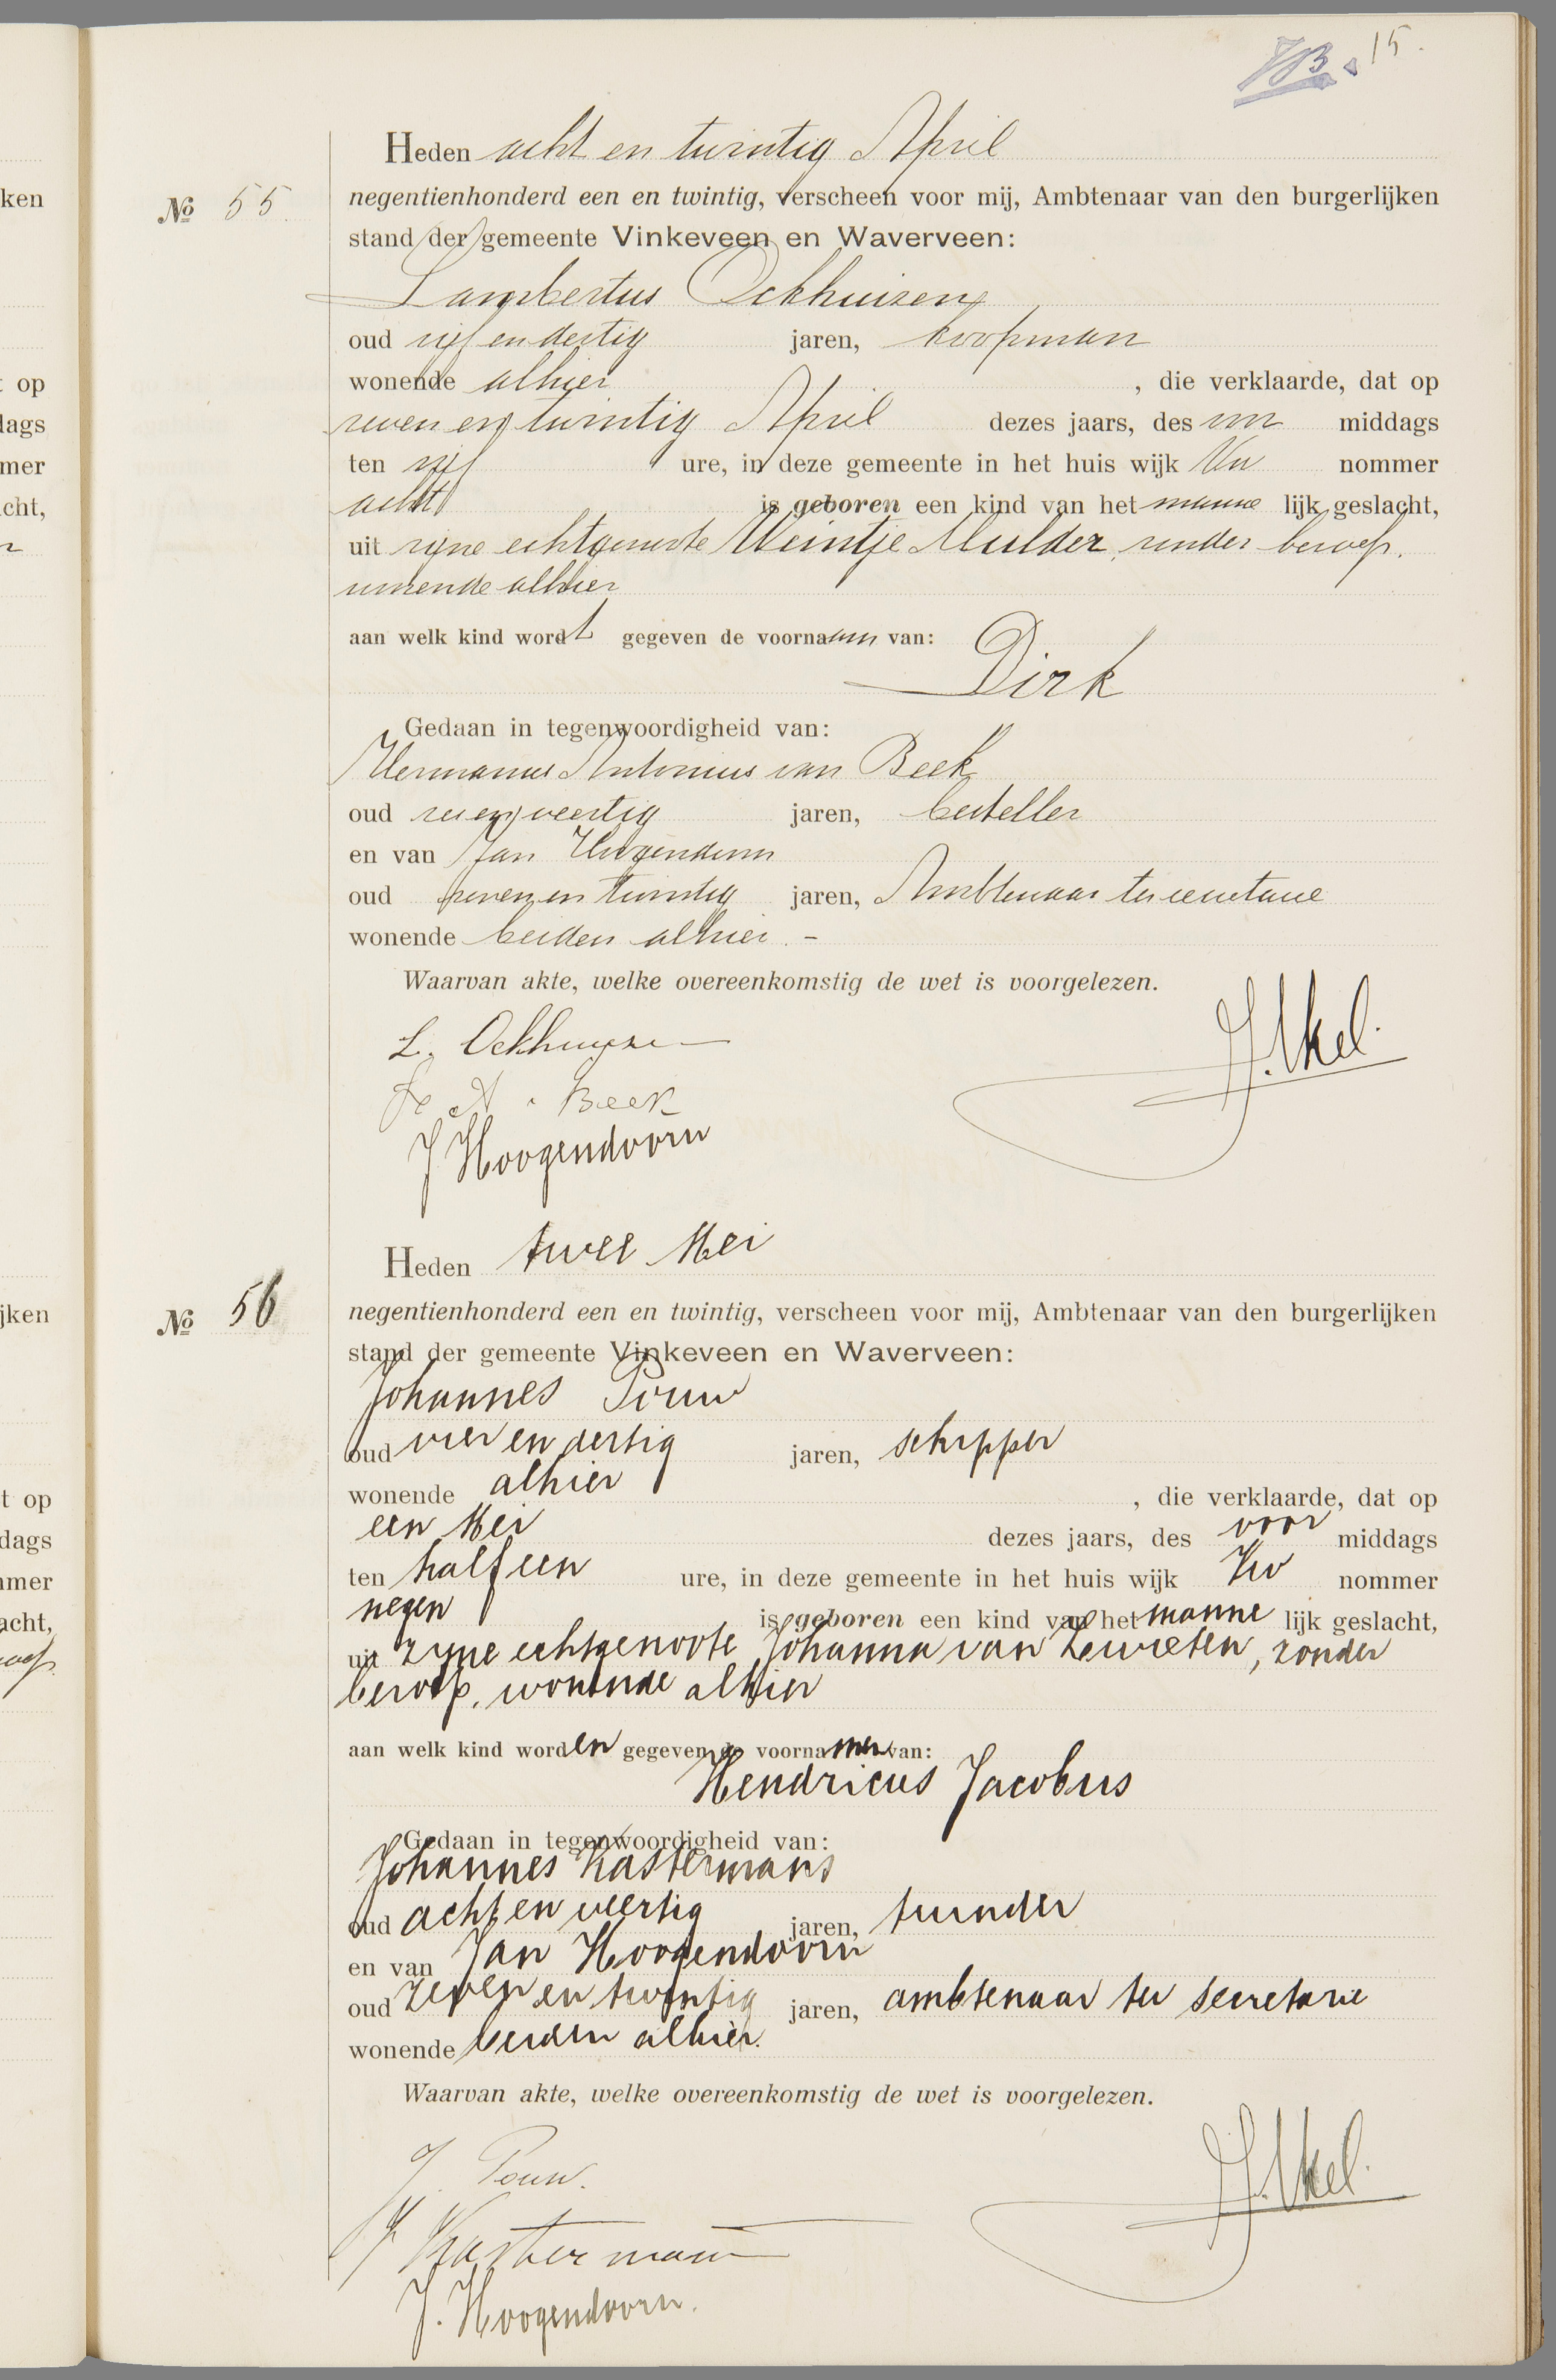 15.
Heden acht en twintig April
No 55.
negentienhonderd een en twintig, verscheen voor mij, Ambtenaar van den burgerlijken
stand der gemeente Vinkeveen en Waverveen:
Lambertus Ockhuizen
oud vijf en dertig jaren, koopman
wonende alhier , die verklaarde, dat op
zeven en twintig April dezes jaars, des voor middags
ten vijf ure, in deze gemeente in het huis wijk nommer
acht is geboren een kind van het manne lijk geslacht,
uit zijne echtgenoote Weintje Mulder, zonder beroep,
wonende alhier
aan welk kind wordt gegeven de voornaam van:
Dirk
Gedaan in tegenwoordigheid van:
Hermanus Antonius van Beek
oud en veertig jaren, besteller
en van Jan Hoogendoorn
oud zeven en twintig jaren, Ambtenaar ter secretarie
wonende beiden alhier. -
Waarvan akte, welke overeenkomstig de wet is voorgelezen.
L. Ockhuyzen
H A v Beek
J Hoogendoorn
Heden twee Mei
No 56
negentienhonderd een en twintig, verscheen voor mij, Ambtenaar van den burgerlijken
stand der gemeente Vinkeveen en Waverveen:
Johannes Pouw
oud vier en dertig jaren, schipper
wonende alhier , die verklaarde, dat op
een Mei dezes jaars, des voor middags
ten half een ure, in deze gemeente in het huis wijk nommer
negen is geboren een kind van het manne lijk geslacht,
uit zijne echtgenoote Johanna van Zwieten, zonder
beroep, wonende alhier
aan welk kind worden gegeven de voornamen van:
Hendricus Jacobus
Gedaan in tegenwoordigheid van:
Johannes Kastermans
oud acht en veertig jaren, tuinder
en van Jan Hoogendoorn
oud zeven en twintig jaren, ambtenaar ter secretarie
wonende beiden alhier.
Waarvan akte, welke overeenkomstig de wet is voorgelezen.
J. Pouw.
J Kastermans
J. Hoogendoorn.